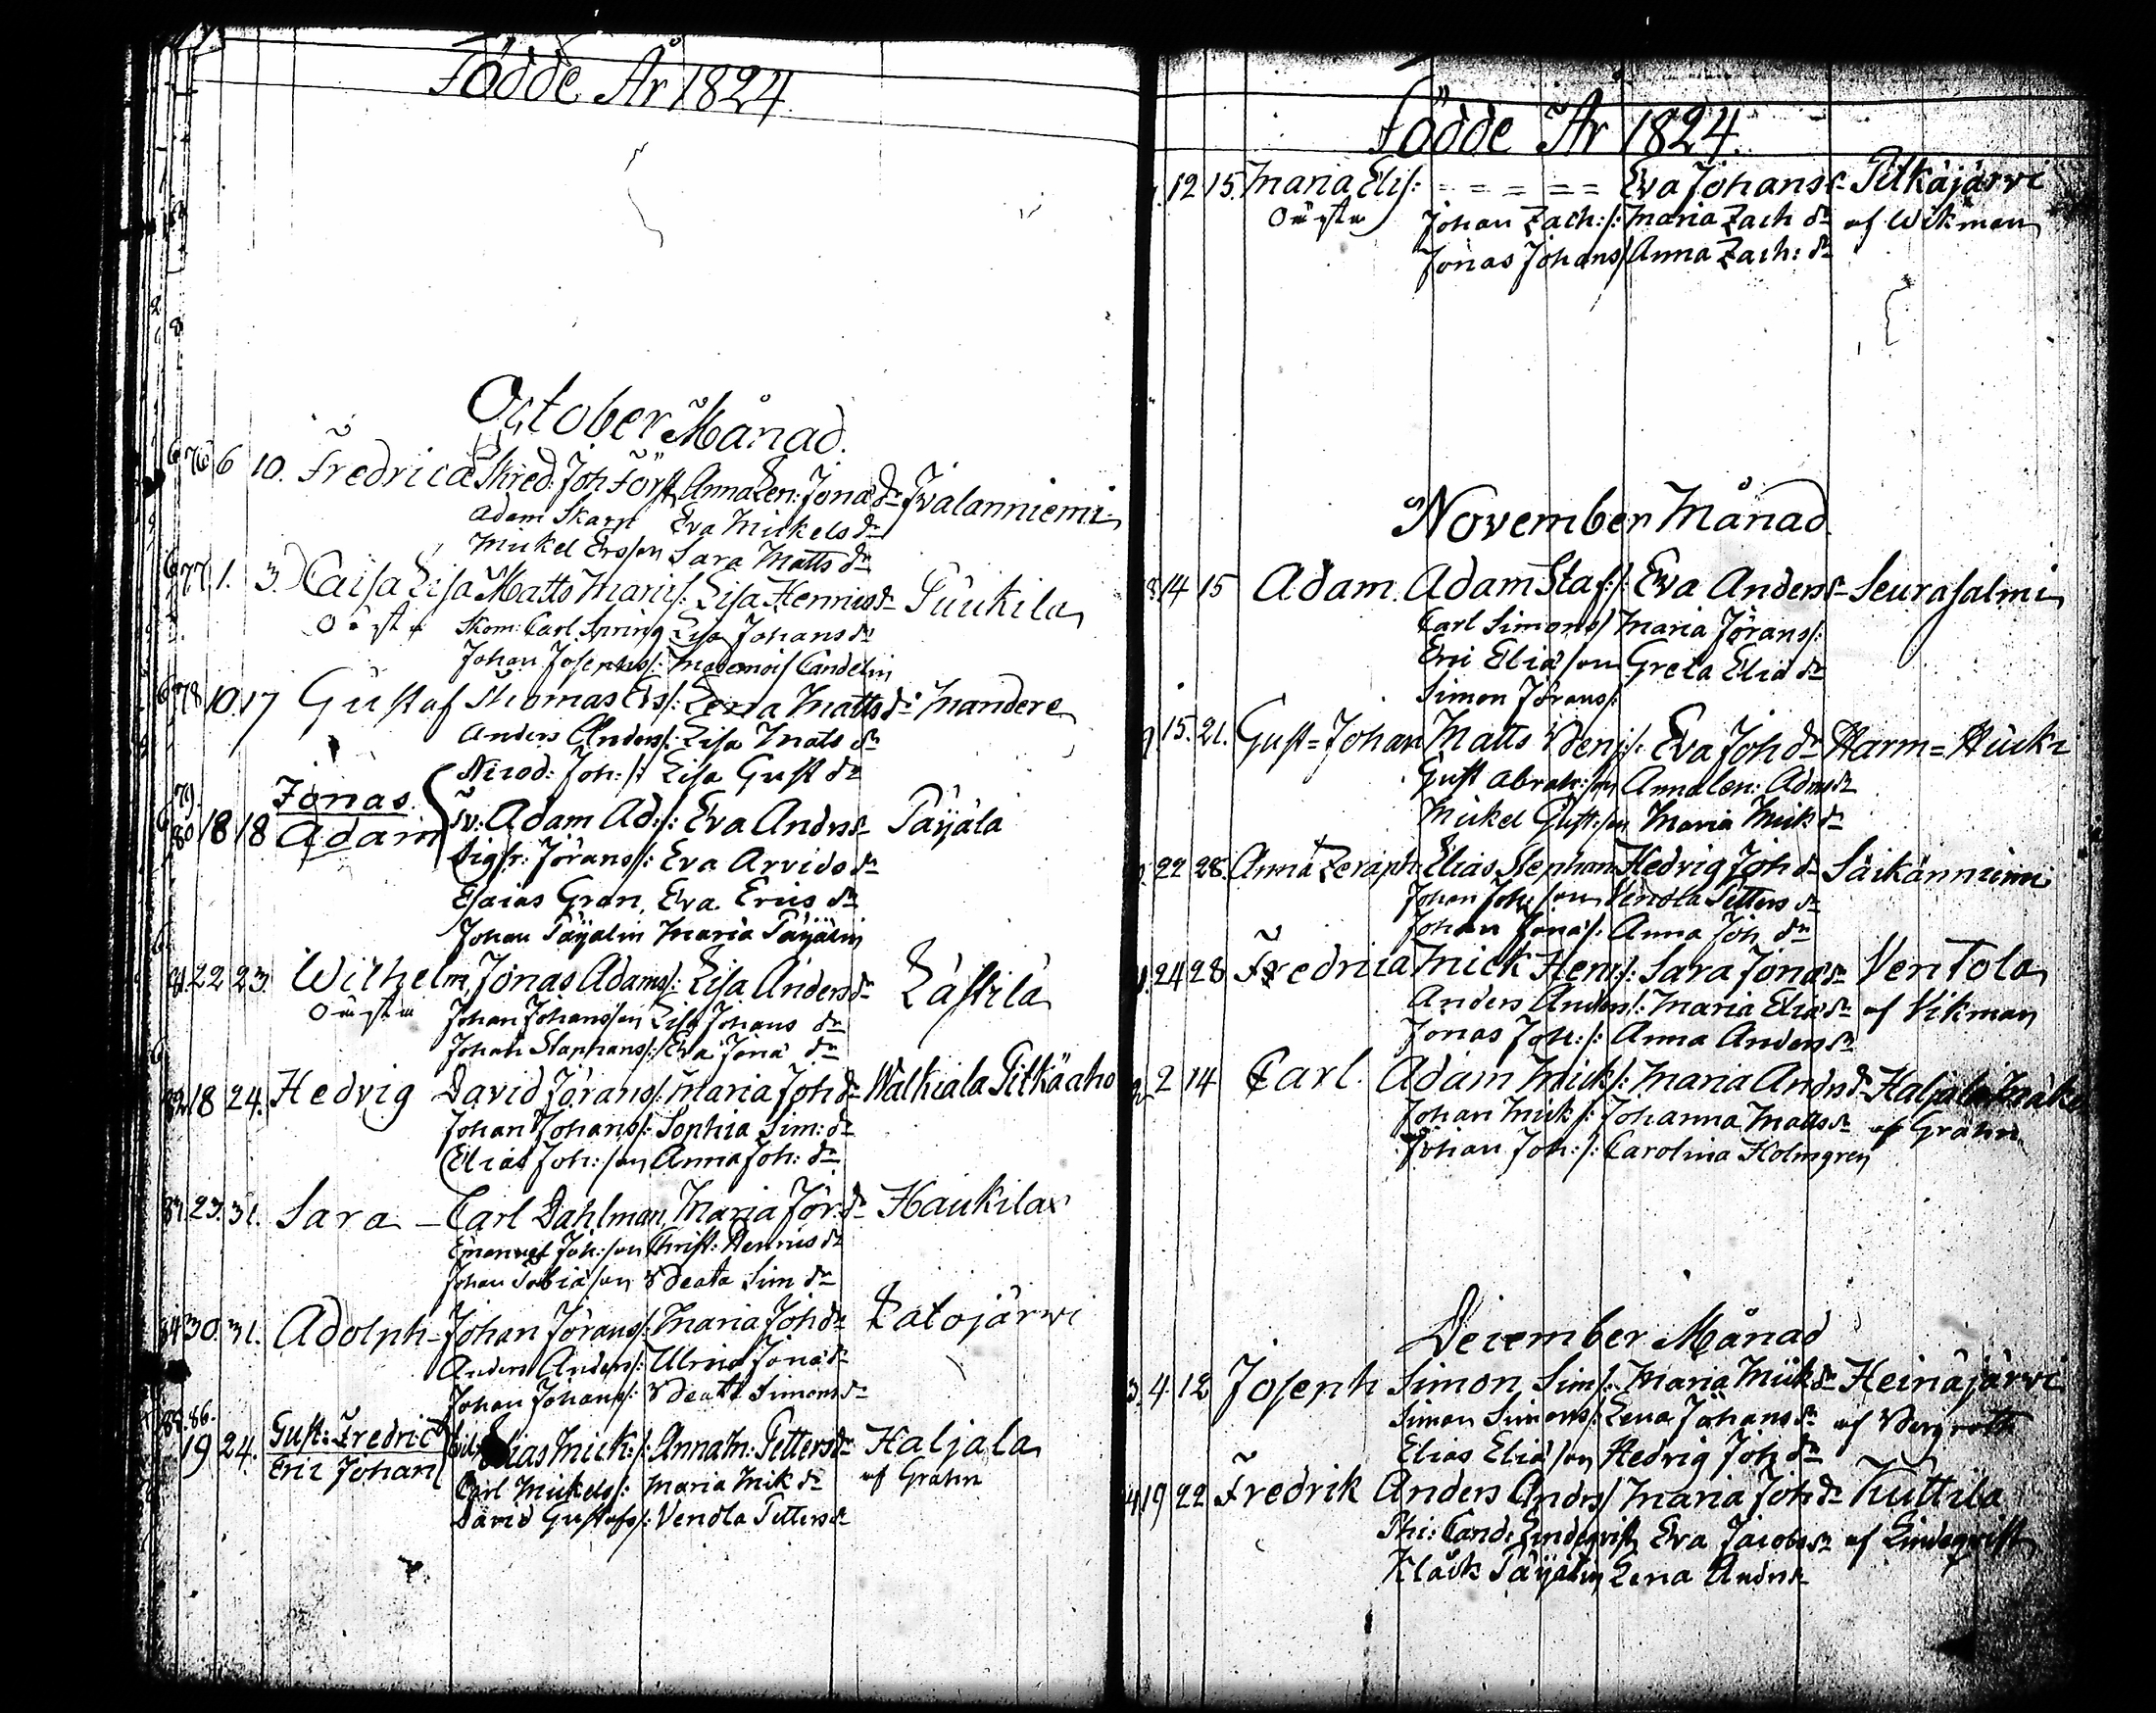 Födde År 1824
October Månad.
76 6 10. Fredrica Skred: Joh Förs Anna Len: Jona dr Ivalanniemi
Adam Skarp Eva Mickels dr
Mickel Ersson Sara Matts dr
77 1. 3. Caisa Lisa Matts Mari/: Lisa Henrics dr Puukila
Oäkta Skom: Carl Spring Lisa Johans dr
Johan Josephs/: Mademois/ Candelin
78 10. 17 Gustaf Thomas Ers/: Lena Matts dr Mandere
Anders Anders/: Lisa Mats dr
Nicod: Joh:/: Lisa Gust dr
79. Jonas.
80 18 18 Adam Sv: Adam Ad:/: Eva Andrs dr Päyälä
Sigfr: Jörans/: Eva Arvids dr
Esaias Gran, Eva Erics dr
Johan Päyälin Maria Päyälin
81. 22 23. Wilhelm, Jonas Adams/: Lisa Anders dr Lästilä
Oäkta Johan Johansson Lisa Johans dr
Johan Staphans/: Eva Jona dr
82 18 24. Hedvig David Jörans/: Maria Joh dr Walkiala Pitkäaho
Johan Johans/: Sophia Sim: dr
Elias Joh:son Anna Joh: dr
83. 23. 31. Sara – Carl Dahlman, Maria Jör: dr Haukilax
Emanuel Joh:son Christ: Henrics dr
Johan Tobiason Beata Sim dr
84 30. 31. Adolph – Johan Jörans/: Maria Joh dr Latojärwi
Anders Anders/: Ulrica Jona dr
Johan Johans/: Beata Simons dr
85. 86. Gust: Fredric
19 24. Eric Johan Elias Mick:/: Anna M: Petters dr Haljala
Carl Mickels/: Maria Mik dr af Grahn
David Gustafs/: Vendla Petters dr
Födde År 1824.
12 15. Maria Elis: = = = = = Eva Johans dr Pitkäjärvi
Oäkta Johan Zach:/: Maria Zach dr af Wikman
Jonas Johans/ Anna Zach: dr
November Månad
14 15 Adam. Adam Staf:/: Eva Anders dr Seurasalmi
Carl Simons/ Maria Jörans/:
Eric Eliasson Greta Elia dr
Simon Jörans/:
15. 21. Gust=Johan Matts Benj/: Eva Joh dr Harm=Huki
Gust Abrah:son Anna Len: Adms dr
Mickel Gust:son Maria Mick dr
22 28. Anna Zeraph: Elias Stephans Hedvig Joh dr Säikänniemi
Johan Joh:son Vendla Petters dr
Johan Jona/: Anna Joh dr
24 28 Fredrica Mick Henr/: Sara Jona dr Ventola
Anders Anders/: Maria Elia dr af Vikman
Jonas Joh:/: Anna Anders dr
2 14 Carl. Adam Mick/: Maria Andrs dr Haljala Mäki
Johan Mick/: Johanna Matts dr af Grahn
Johan Joh:/: Carolina Holmgren
December Månad
4. 12 Joseph Simon Sim/: Maria Mick dr Heinäjärvi
Simon Simons/: Lena Johans dr af Bergroth
Elias Eliasson Hedvig Joh dr
19 22 Fredrik Anders Andrs/ Maria Joh dr Kuttila
Phi: Cand: Lindeqvist Eva Jacobs dr af Lindeqvist
Klock Päyälin Lena Andrs dr